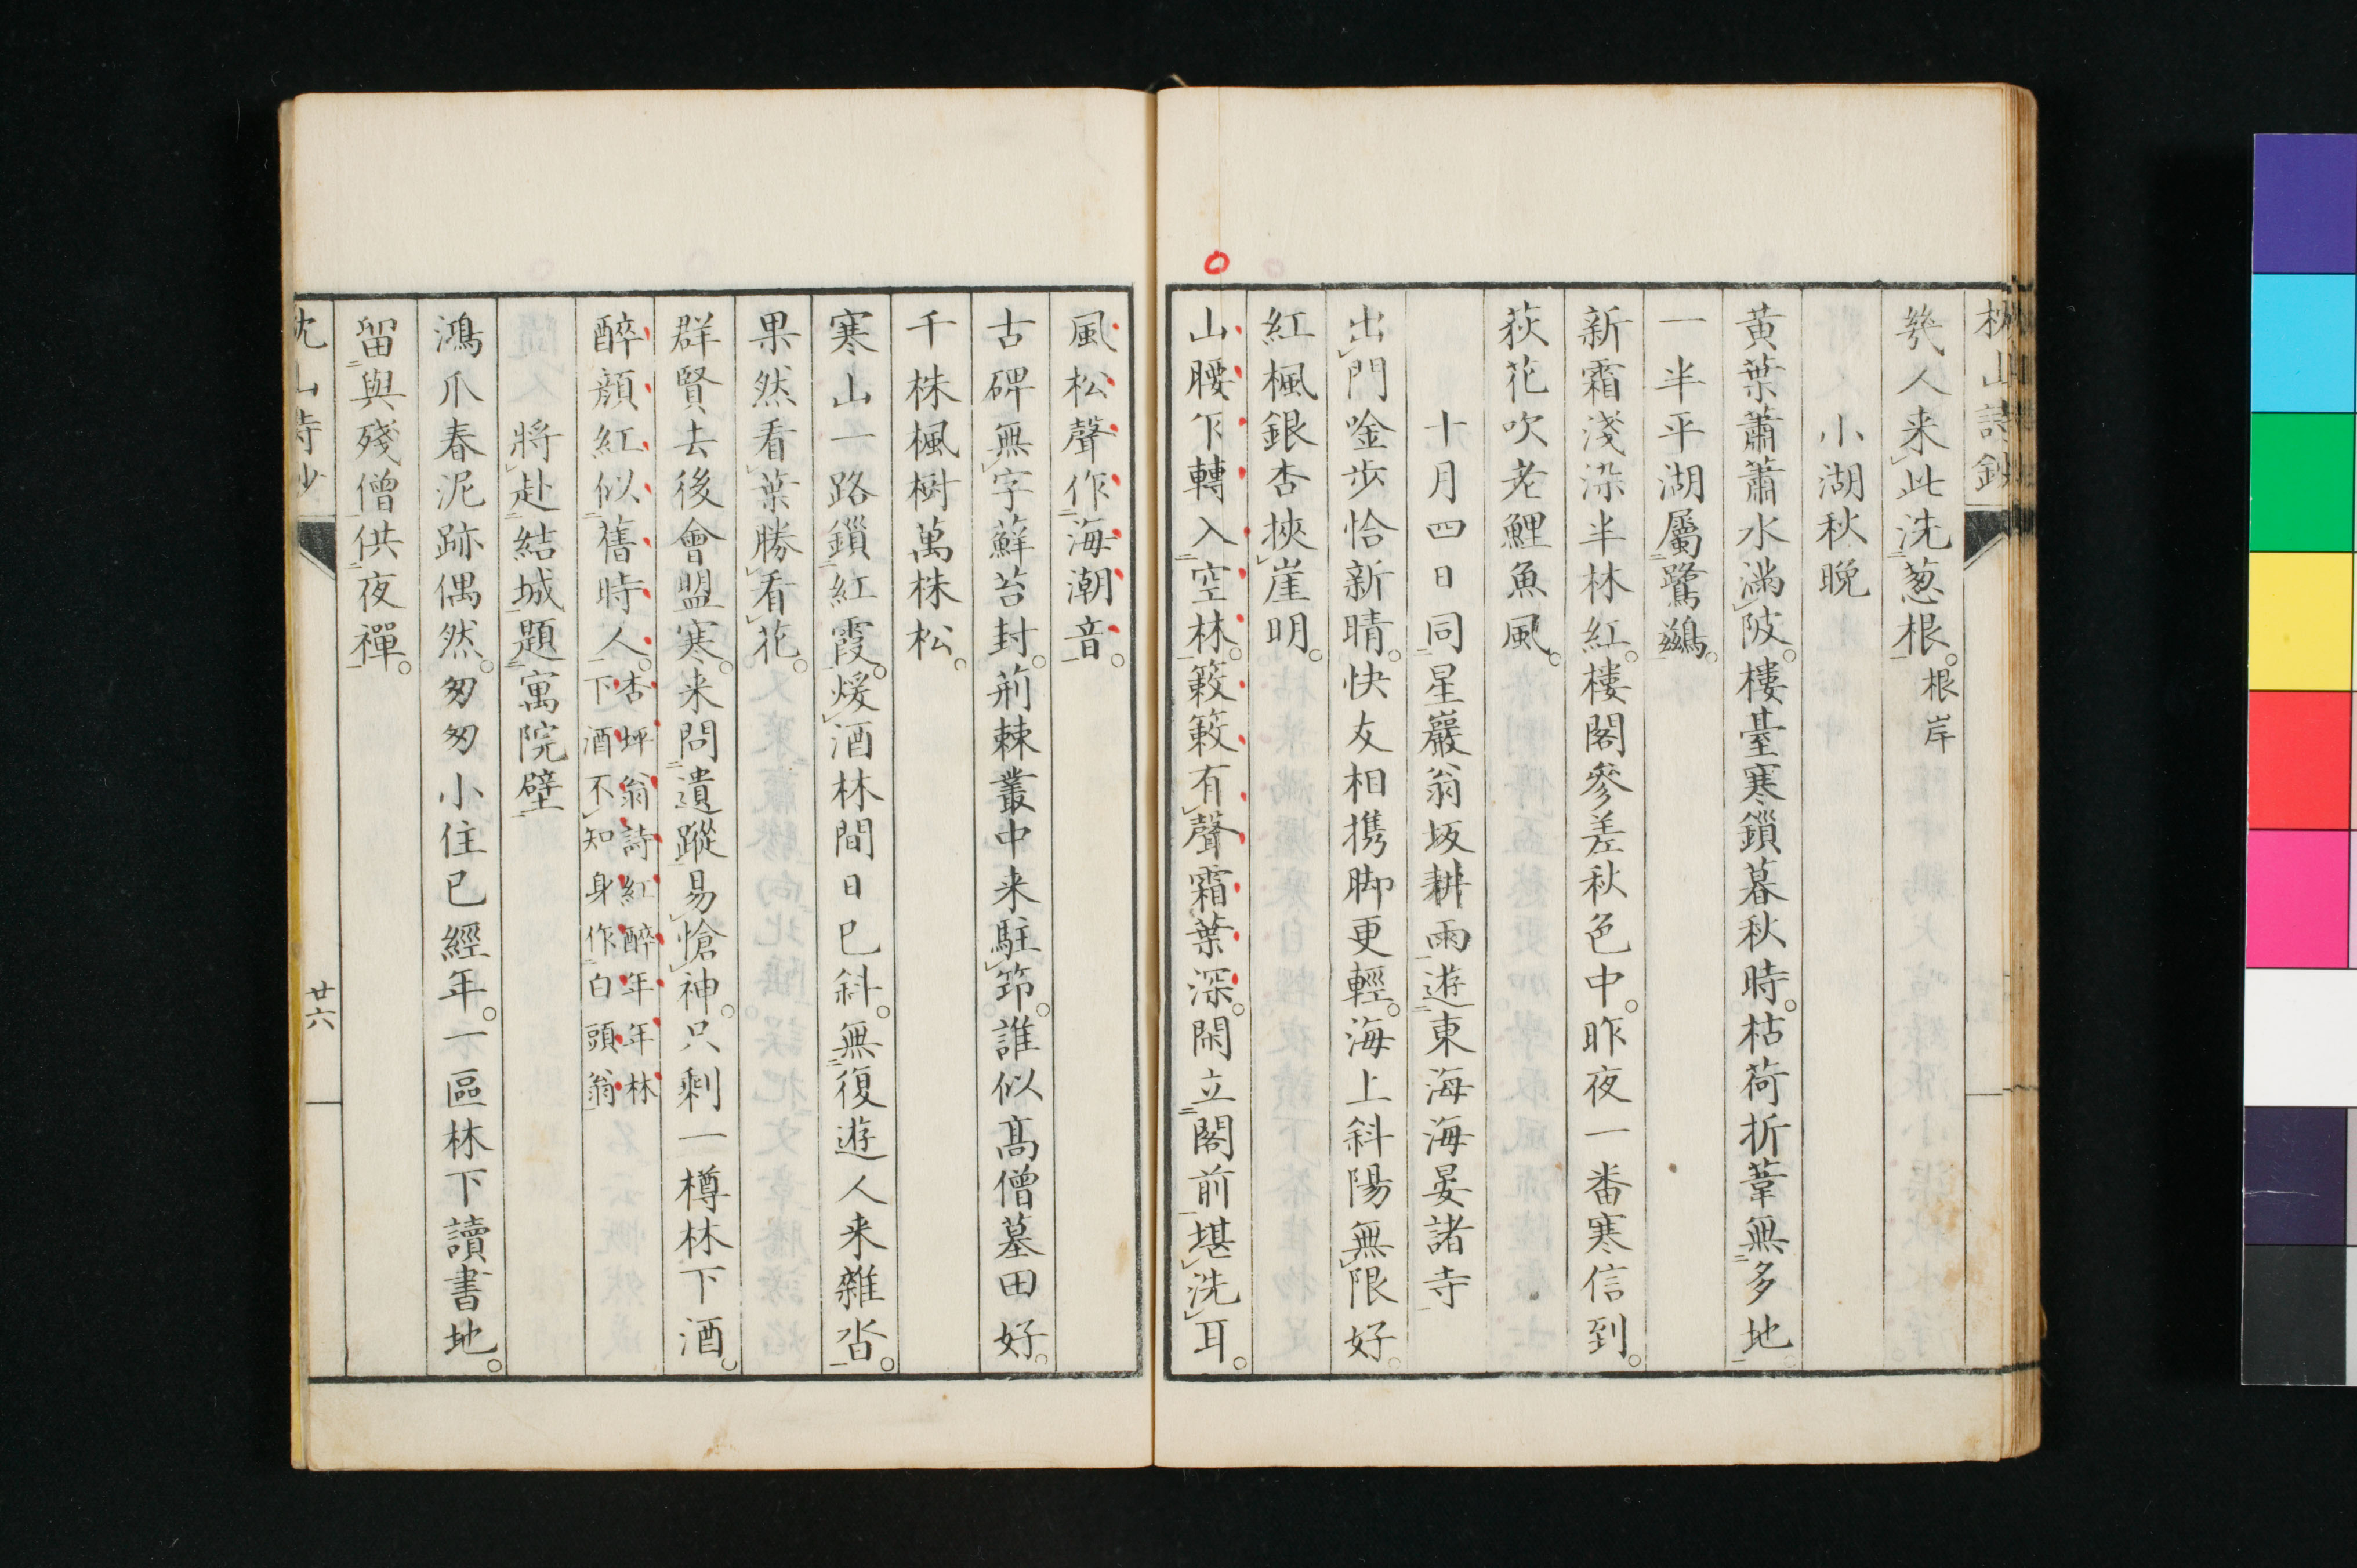 枕山詩鈔
幾人来此洗葱根。根岸
小湖秋晩
黄葉蕭蕭水滿陂。樓臺寒鎖暮秋時。枯荷折葦無多地。
一半平湖屬鷺鷀。
新霜淺染半林紅。樓閣參差秋色中。昨夜一番寒信到。
荻花吹老鯉魚風。
十月四日同星巖翁坂耕雨遊東海海晏諸寺
出門唫步恰新晴。快友相携脚更輕。海上斜陽無限好。
紅楓銀杏挾崖明。
山腰乍轉入空林。簌簌有聲霜葉深。閑立閣前堪洗耳。
風松聲作海潮音。
古碑無字蘚苔封。荊棘叢中来駐笻。誰似高僧墓田好。
千株楓樹萬株松。
寒山一路鎖紅霞。煖酒林間日已斜。無復遊人来雜沓。
果然看葉勝看花。
群賢去後會盟寒。来問遺蹤易愴神。只剩一樽林下酒。
醉顔紅似舊時人。杏坪翁詩紅醉年年林
下酒不知身作白頭翁
將赴結城題寓院壁
鴻爪春泥跡偶然。匆匆小住已經年。一區林下讀書地。
留與殘僧供夜禪。
枕山詩鈔
廿六